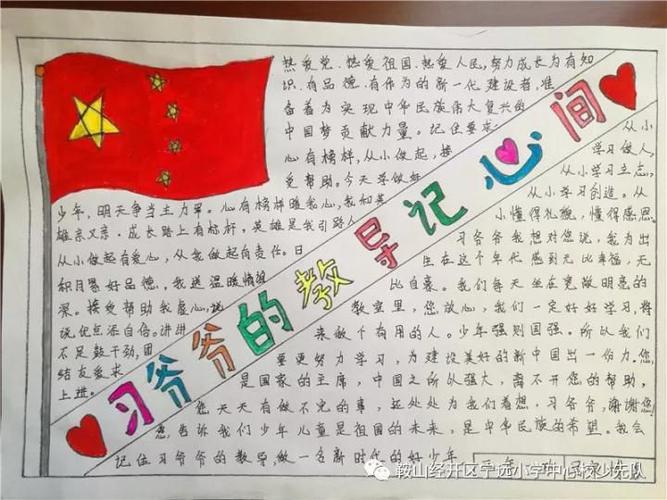 热爱党、热爱祖国、热爱人民,努力成长为有知
识、有品德、有作为的新一代建设者,准
备着为实现中华民族伟大复兴的
中国梦贡献力量。记住要求
心有榜样,从小做起,接
受帮助。今天学做好
少年,明天争当主力军。心有榜样暖我心,我和英
雄亲又亲。成长路上有标杆。英雄是我引路人
从小做起有爱心,从我做起有责任。日
积月累好品德,我送温暖情谊
深。接受帮助我虚心,说
说优点添自信。讲讲
不足鼓干劲,团
结友爱求
上进。
习爷爷的教导记心间
从小
学习做人,
从小学习立志,
从小学习创造。从
小懂得礼貌,懂得感恩
习爷爷我想对您说,我为出
生在这个年代感到无比幸福,无
比自豪。我们每天坐在宽敞明亮的
教室里,您放心,我们一定好好学习,将
来做个有用的人。少年强则国强。所以我们
要更努力学习,为建设美好的新中国出一份力。您
是国家的主席,中国之所以强大,离不开您的帮助,
您天天有做不完的事 还处处为我们着想,习爷爷,谢谢您
您告诉我们少年儿童是祖国的未来,是中华民族的希望。我会
记住习爷爷的教导,做一名新时代的好少年
鞍山经开区宁远小学中心校少先队